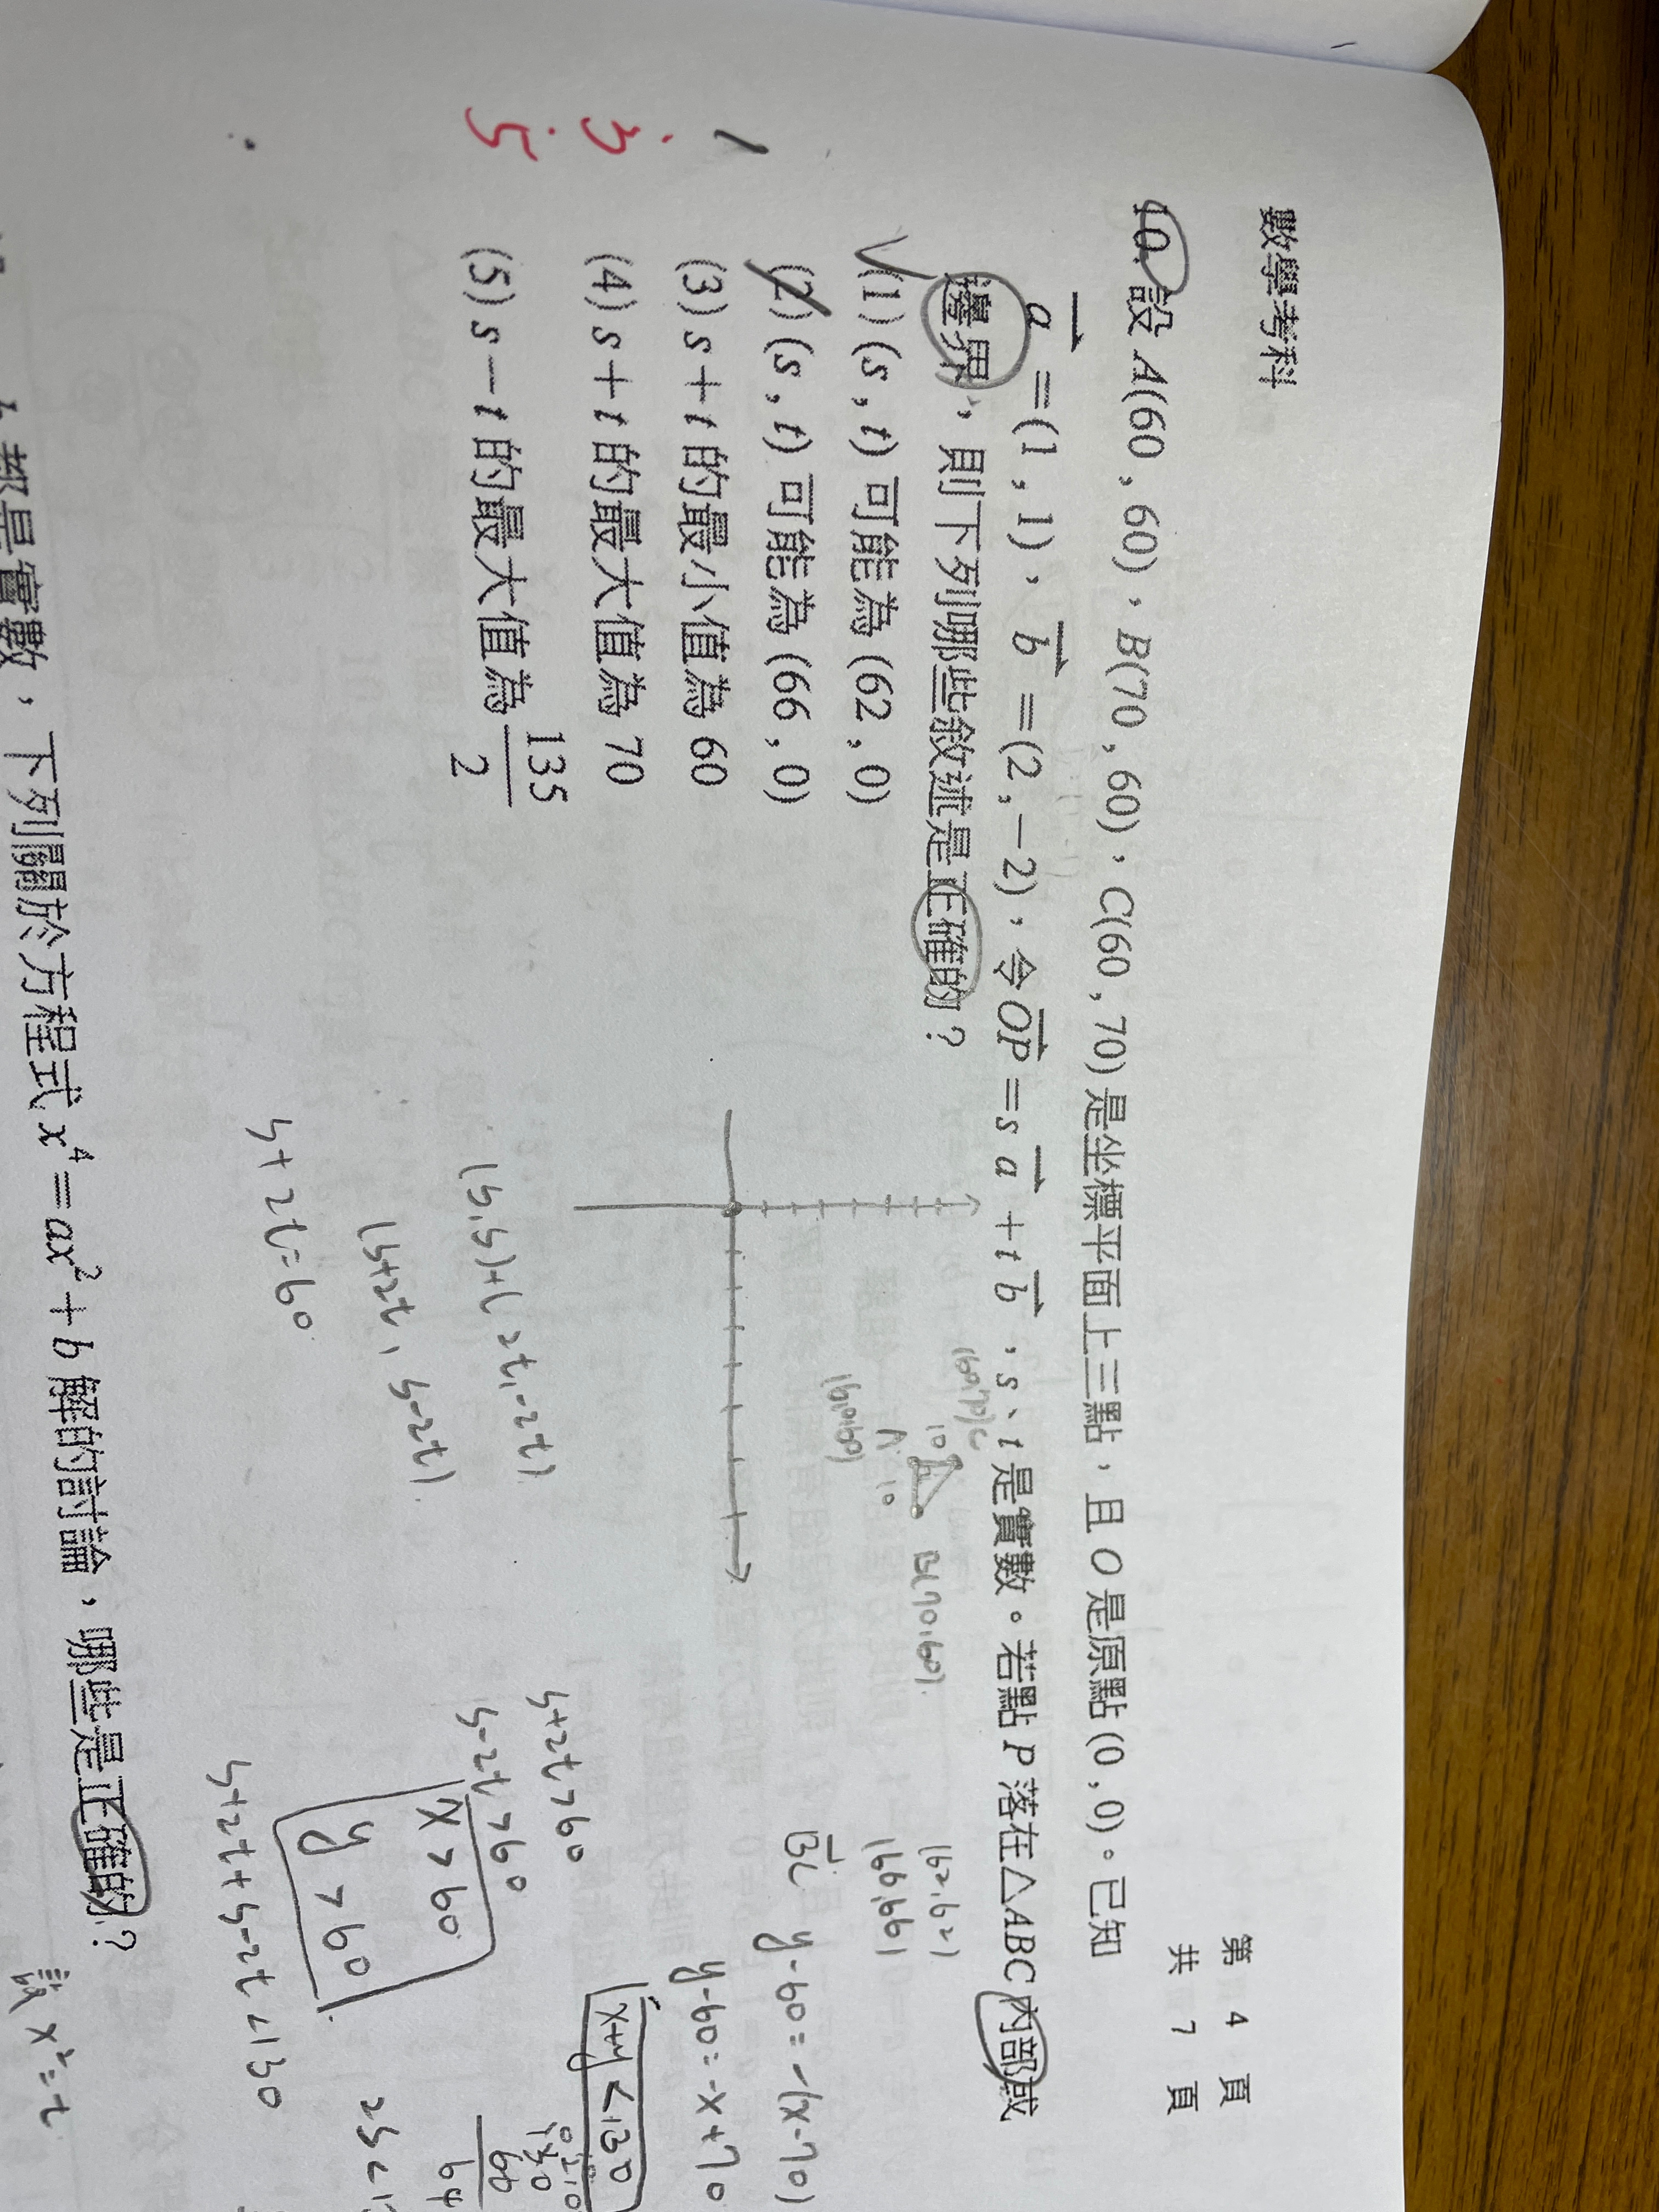 數學考科
第 4 頁
共 7 頁
10. 設 A(60 , 60)、B(70 , 60)、C(60 , 70) 是坐標平面上三點,且 O 是原點 (0 , 0)。已知
a = (1 , 1)、b = (2 , −2),令 OP = s a + t b ,s、t 是實數。若點 P 落在△ABC 內部或
邊界,則下列哪些敘述是正確的?
(1) (s , t) 可能為 (62 , 0)
(2) (s , t) 可能為 (66 , 0)
(3) s + t 的最小值為 60
(4) s + t 的最大值為 70
(5) s − t 的最大值為 135/2
1
3
5
C(60,70)
10
A
10
(60,60)
B(70,60)
(62,62)
(66,66)
BC
y-60=-(x-70)
y-60=-x+70
x+y<130
(s,s)+(2t,-2t)
(s+2t, s-2t)
s+2t=60
s+2t>60
s-2t>60
x>60
y>60
s+2t+s-2t<130
2s<1
都是實數,下列關於方程式 x⁴ = ax² + b 解的討論,哪些是正確的?
設 x²=t